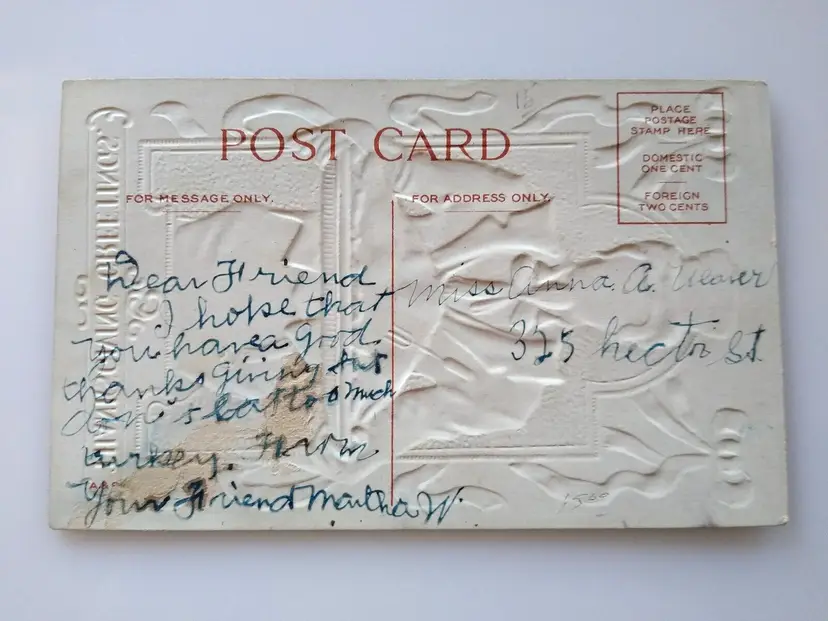 POST CARD
PLACE
POSTAGE
STAMP HERE
DOMESTIC
ONE CENT
FOREIGN
TWO CENTS
FOR MESSAGE ONLY.
FOR ADDRESS ONLY.
Dear Friend
I hope that
you have a good
thanksgiving but
don't eat too much
turkey. From
Your Friend Martha W.
Miss Anna. A. Weaver
325 Hector St.
THANKSGIVING GREETINGS.
15
1500